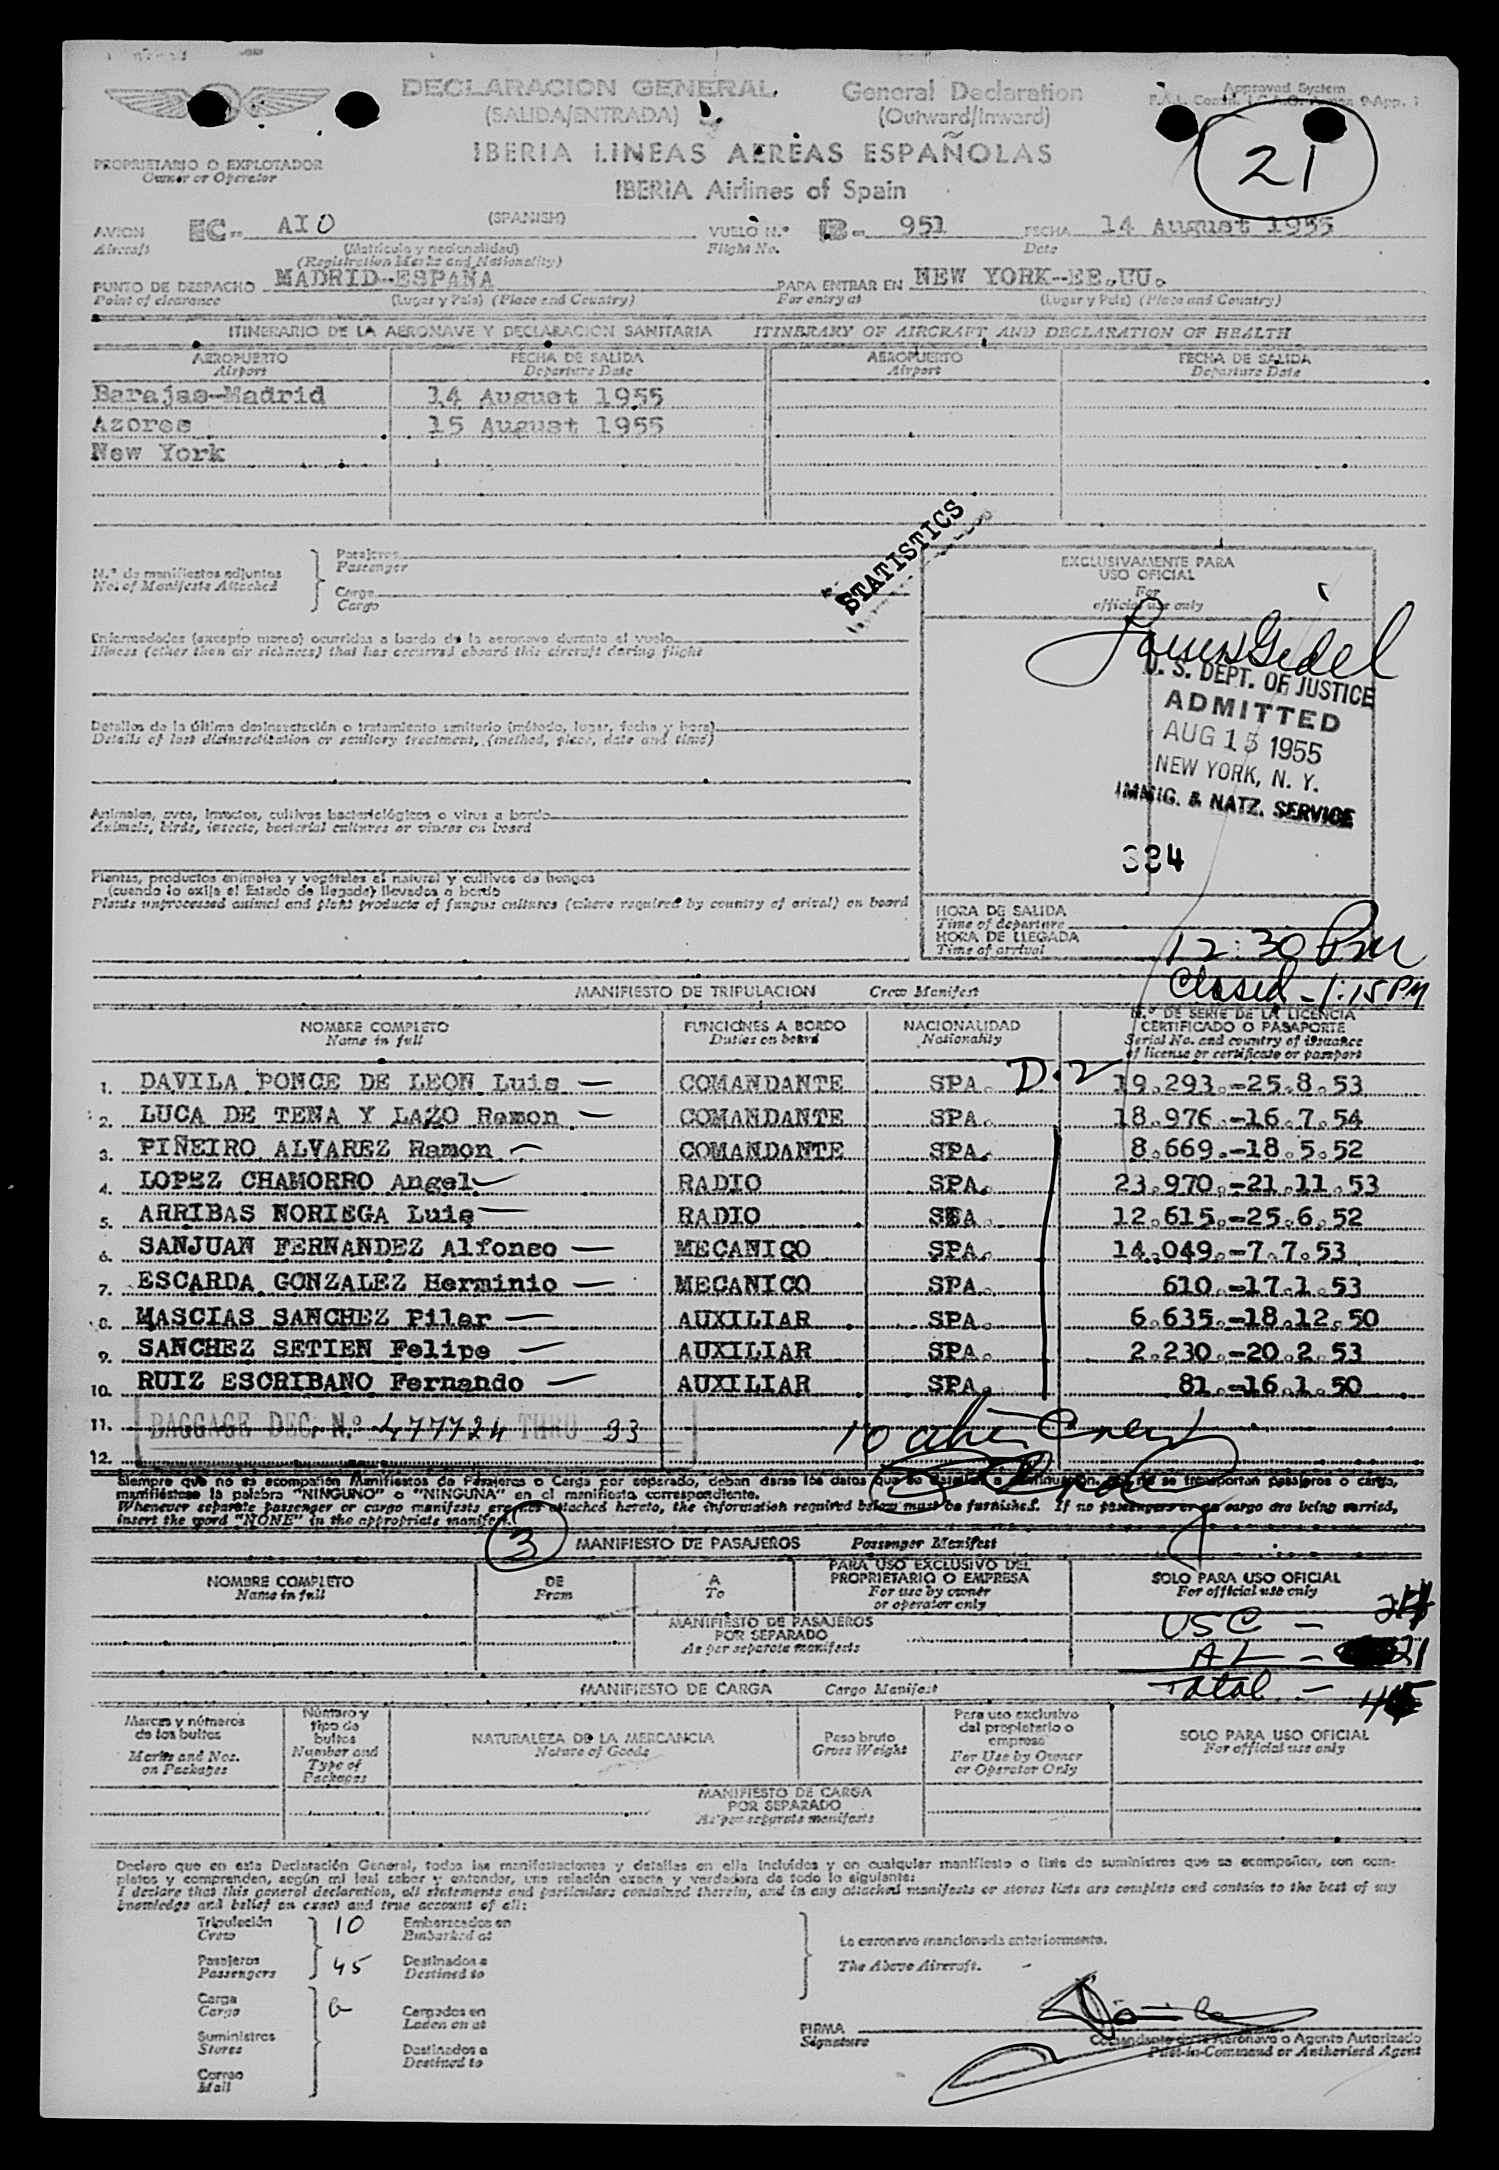 DECLARACION GENERAL General Declaration Approved System
(SALIDA/ENTRADA) (Outward/Inward) F.A.L. 9-App. 1
21
IBERIA LINEAS AEREAS ESPAÑOLAS
PROPIETARIO O EXPLOTADOR
Owner or Operator
IBERIA Airlines of Spain
AVION EC- AIO (SPANISH) VUELO N.º IB- 951 FECHA 14 August 1955
Aircraft (Matricula y nacionalidad) Flight No. Date
(Registration Marks and Nationality)
PUNTO DE DESPACHO MADRID-ESPAÑA PARA ENTRAR EN NEW YORK--EE.UU.
Point of clearance (Lugar y País) (Place and Country) For entry at (Lugar y País) (Place and Country)
ITINERARIO DE LA AERONAVE Y DECLARACION SANITARIA ITINERARY OF AIRCRAFT AND DECLARATION OF HEALTH
AEROPUERTO FECHA DE SALIDA AEROPUERTO FECHA DE SALIDA
Airport Departure Date Airport Departure Date
Barajas-Madrid 14 August 1955
Azores 15 August 1955
New York
STATISTICS
N.º de manifiestos adjuntos
No. of Manifests Attached
Pasajeros
Passenger
Carga
Cargo
EXCLUSIVAMENTE PARA
USO OFICIAL
For
official use only
Enfermedades (excepto mareo) ocurridas a bordo de la aeronave durante el vuelo
Illness (other than air sickness) that has occurred aboard this aircraft during flight
U. S. DEPT. OF JUSTICE
ADMITTED
AUG 15 1955
NEW YORK, N. Y.
IMMIG. & NATZ. SERVICE
384
Detalles de la última desinsectación o tratamiento sanitario (método, lugar, fecha y hora)
Details of last disinsectization or sanitary treatment, (method, place, date and time)
Animales, aves, insectos, cultivos bacteriológicos o virus a bordo
Animals, birds, insects, bacterial cultures or viruses on board
Plantas, productos animales y vegetales al natural y cultivos de hongos
(cuando lo exija el Estado de llegada) llevados a bordo
Plants unprocessed animal and plant products of fungus cultures (where required by country of arival) on board
HORA DE SALIDA
Time of departure
HORA DE LLEGADA
Time of arrival 12:30 PM
Closed - 1:15 PM
MANIFIESTO DE TRIPULACION Crew Manifest
NOMBRE COMPLETO FUNCIONES A BORDO NACIONALIDAD N.º DE SERIE DE LA LICENCIA
Name in full Duties on board Nationality CERTIFICADO O PASAPORTE
Serial No. and country of issuance
of license or certificate or passport
1. DAVILA PONCE DE LEON Luis COMANDANTE SPA. D-2 19.293.-25.8.53
2. LUCA DE TENA Y LAZO Ramon COMANDANTE SPA. 18.976.-16.7.54
3. PIÑEIRO ALVAREZ Ramon COMANDANTE SPA. 8.669.-18.5.52
4. LOPEZ CHAMORRO Angel RADIO SPA. 23.970.-21.11.53
5. ARRIBAS NORIEGA Luis RADIO SPA. 12.615.-25.6.52
6. SANJUAN FERNANDEZ Alfonso MECANICO SPA. 14.049.-7.7.53
7. ESCARDA GONZALEZ Herminio MECANICO SPA. 610.-17.1.53
8. MASCIAS SANCHEZ Pilar AUXILIAR SPA. 6.635.-18.12.50
9. SANCHEZ SETIEN Felipe AUXILIAR SPA. 2.230.-20.2.53
10. RUIZ ESCRIBANO Fernando AUXILIAR SPA. 81.-16.1.50
11. BAGGAGE DEC. N.º 477724 THRU 33 10 alien Crew
12.
Siempre que no se acompañen Manifiestos de Pasajeros o Carga por separado, deban darse los datos que se detallan a continuación. no se transportan pasajeros o carga,
manifiéstese la palabra "NINGUNO" o "NINGUNA" en el manifiesto correspondiente.
Whenever separate passenger or cargo manifests are not attached hereto, the information required below must be furnished. If no passengers or no cargo are being carried,
insert the word "NONE" in the appropriate manifest.
3 MANIFIESTO DE PASAJEROS Passenger Manifest
NOMBRE COMPLETO DE A PARA USO EXCLUSIVO DEL SOLO PARA USO OFICIAL
Name in full From To PROPIETARIO O EMPRESA For official use only
For use by owner
or operator only
MANIFIESTO DE PASAJEROS
POR SEPARADO
As per separate manifests
USC -
AL - 21
Total - 45
MANIFIESTO DE CARGA Cargo Manifest
Marcas y números
de los bultos
Marks and Nos.
on Packages
Número y
tipo de
bultos
Number and
Type of
Packages
NATURALEZA DE LA MERCANCIA
Nature of Goods
Peso bruto
Gross Weight
Para uso exclusivo
del propietario o
empresa
For Use by Owner
or Operator Only
SOLO PARA USO OFICIAL
For official use only
MANIFIESTO DE CARGA
POR SEPARADO
As per separate manifests
Declaro que en esta Declaración General, todas las manifestaciones y detalles en ella incluídos y en cualquier manifiesto o lista de suministros que se acompañen, son com-
pletos y comprenden, según mi leal saber y entender, una relación exacta y verdadera de todo lo siguiente:
I declare that this general declaration, all statements and particulars contained therein, and in any attached manifests or stores lists are complete and contain to the best of my
knowledge and belief an exact and true account of all:
Tripulación 10 Embarcados en
Crew Embarked at
Pasajeros 45 Destinados a
Passengers Destined to
La aeronave mencionada anteriormente.
The Above Aircraft.
Carga Cargados en
Cargo Laden on at
Suministros Destinados a
Stores Destined to
Correo
Mail
FIRMA
Signature
Comandante de la Aeronave o Agente Autorizado
Pilot-in-Command or Authorised Agent